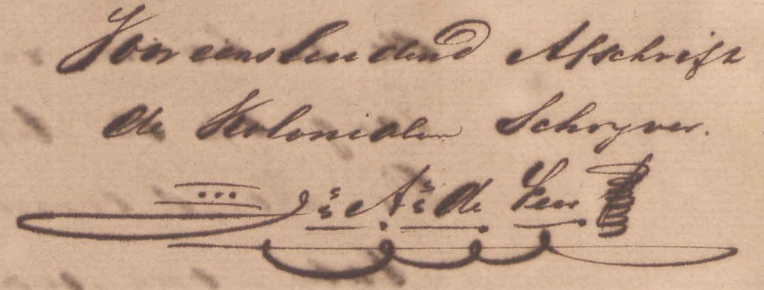 Voor eensluidend Afschrift
de Koloniale Schryver.
A: de